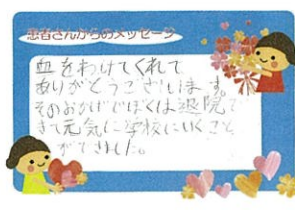 患者さんからのメッセージ
血をわけてくれて
ありがとうございます。
そのおかげでぼくは退院で
きて元気に学校にいくこと
ができました。